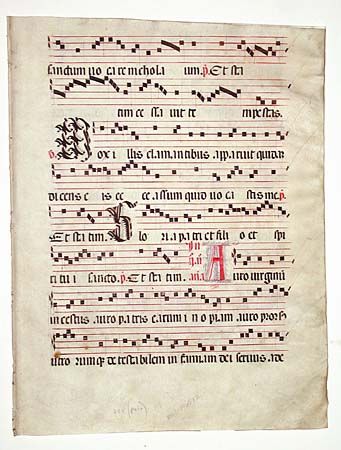 sanctum uo ca re nichola um. p. Et sta
tim ce ssa uit te mpestas.
ox i llis clamantibus apparuit quidaz
dicens e is ec ce assum quid uo ca stis me. p.
Et sta tim. Glo ria patri et fili o et spi
ritui sancto. p. Et sta tim. Auro uirginū
incestus auro patris earum in o piam auro prorsꝰ
utro rumqꝫ de testabilem in famiam dei seruus ade